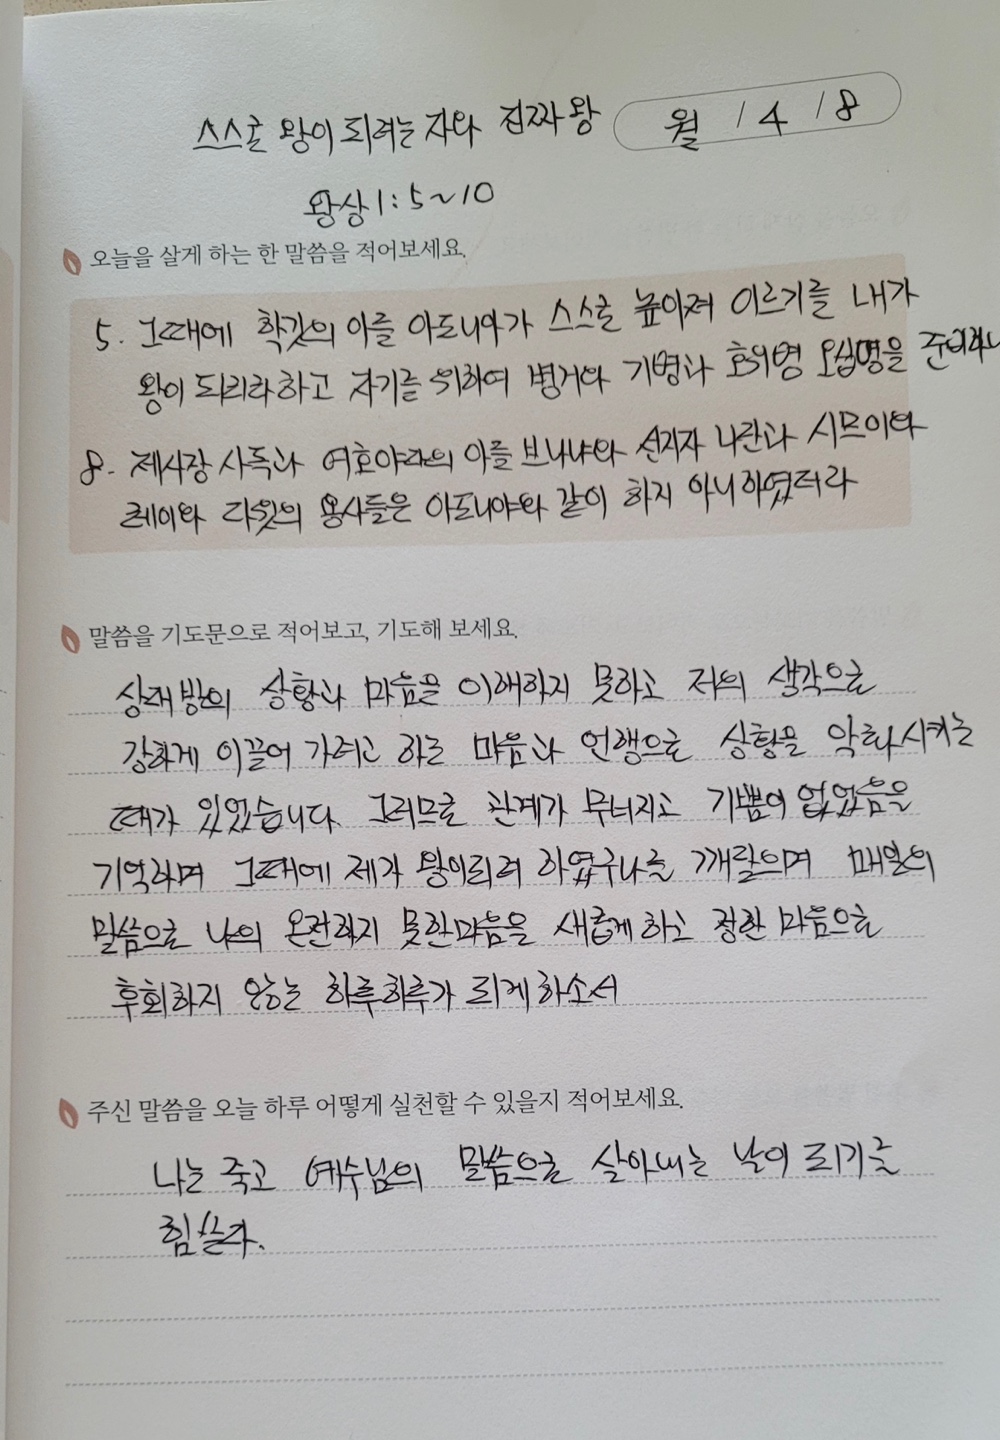 스스로 왕이 되려는 자와 진짜 왕
월 / 4 / 8
왕상 1:5~10
오늘을 살게 하는 한 말씀을 적어보세요.
5. 그때에 학깃의 아들 아도니야가 스스로 높아져 이르기를 내가
왕이 되리라 하고 자기를 위하여 병거와 기병과 호위병 오십명을 준비하니
8. 제사장 사독과 여호야다의 아들 브나냐와 선지자 나단과 시므이와
레이와 다윗의 용사들은 아도니야와 같이 하지 아니하였더라
말씀을 기도문으로 적어보고, 기도해 보세요.
상대방의 상황과 마음을 이해하지 못하고 저의 생각으로
강하게 이끌어 가려고 하는 마음과 언행으로 상황을 악화시키는
때가 있었습니다. 그러므로 관계가 무너지고 기쁨이 없었음을
기억하며 그때에 제가 왕이되려 하였구나를 깨달으며 매일의
말씀으로 나의 온전하지 못한마음을 새롭게 하고 정한 마음으로
후회하지 않는 하루하루가 되게 하소서
주신 말씀을 오늘 하루 어떻게 실천할 수 있을지 적어보세요.
나는 죽고 예수님의 말씀으로 살아내는 날이 되기를
힘쓰자.